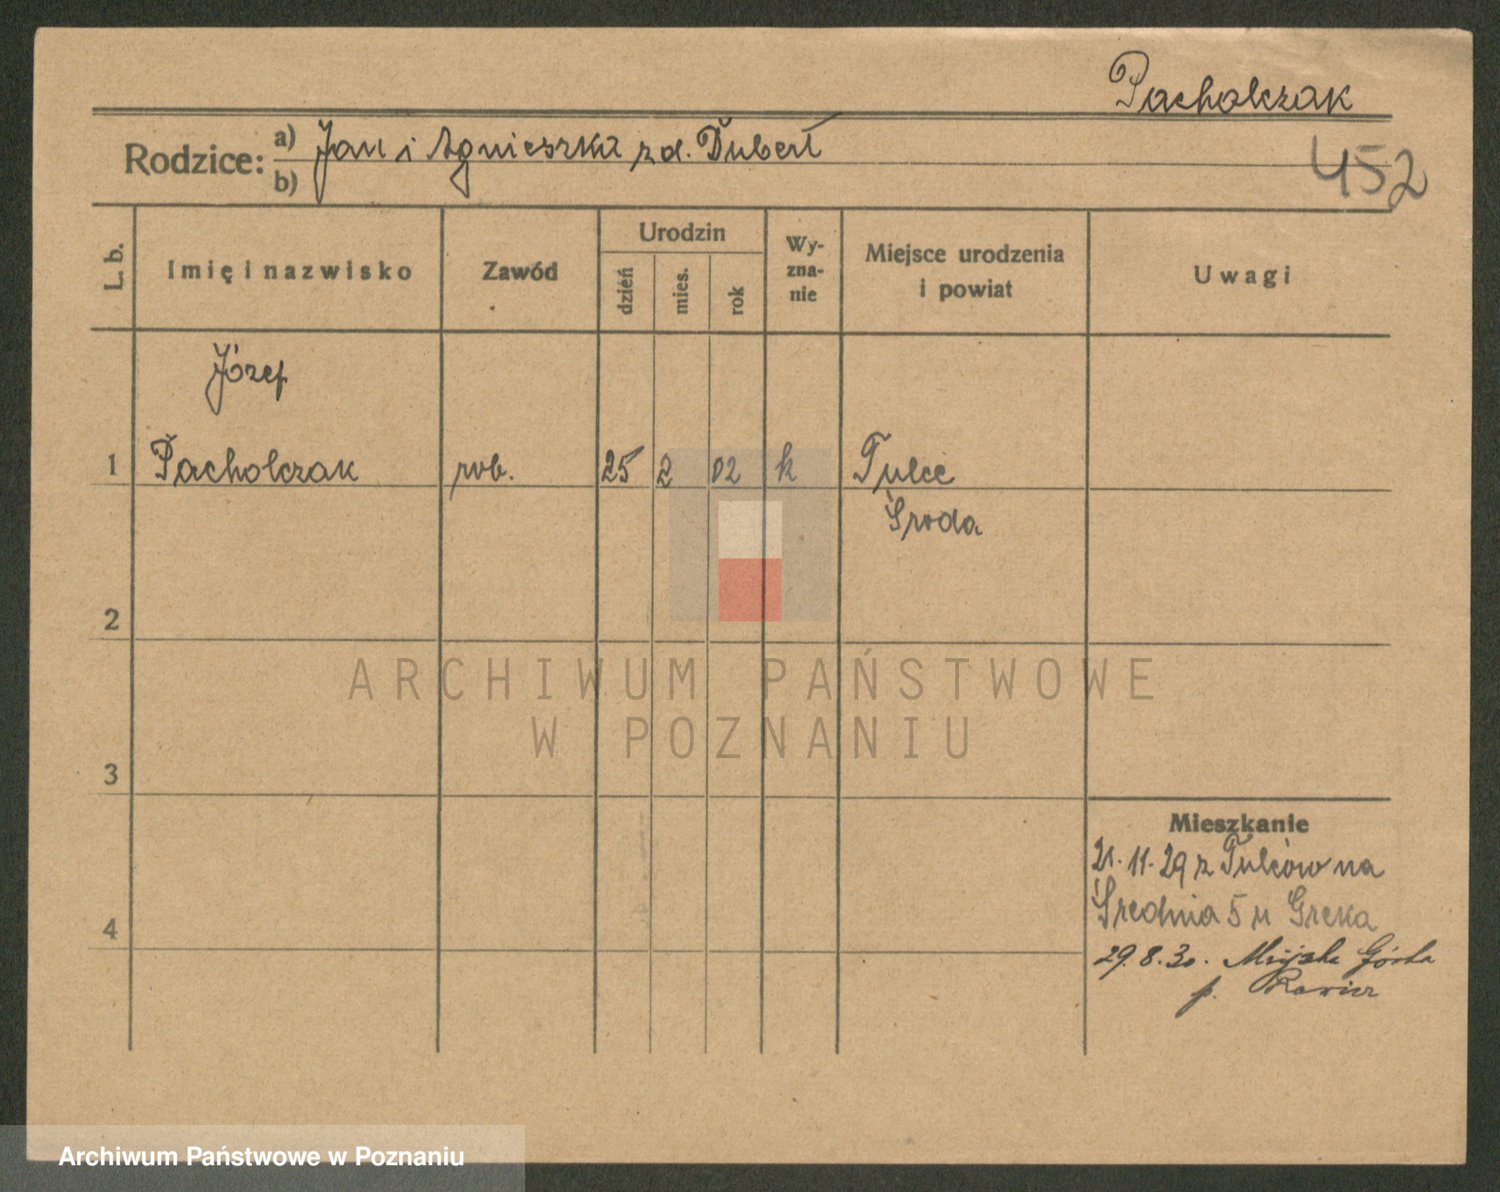 Pacholczak
452
Rodzice: a) Jan i Agnieszka zd. Dubert
b)
L. b. Imię i nazwisko Zawód Urodzin Wyznanie Miejsce urodzenia i powiat Uwagi
dzień mies. rok
Józef
1 Pacholczak rob. 25 2 02 k Tulce
Środa
2
ARCHIWUM PAŃSTWOWE
W POZNANIU
3
Mieszkanie
21.11.29 z Tulców na
Średnia 5 u Greka
4
29.8.30. Miejska Górka
p. Rawicz
Archiwum Państwowe w Poznaniu